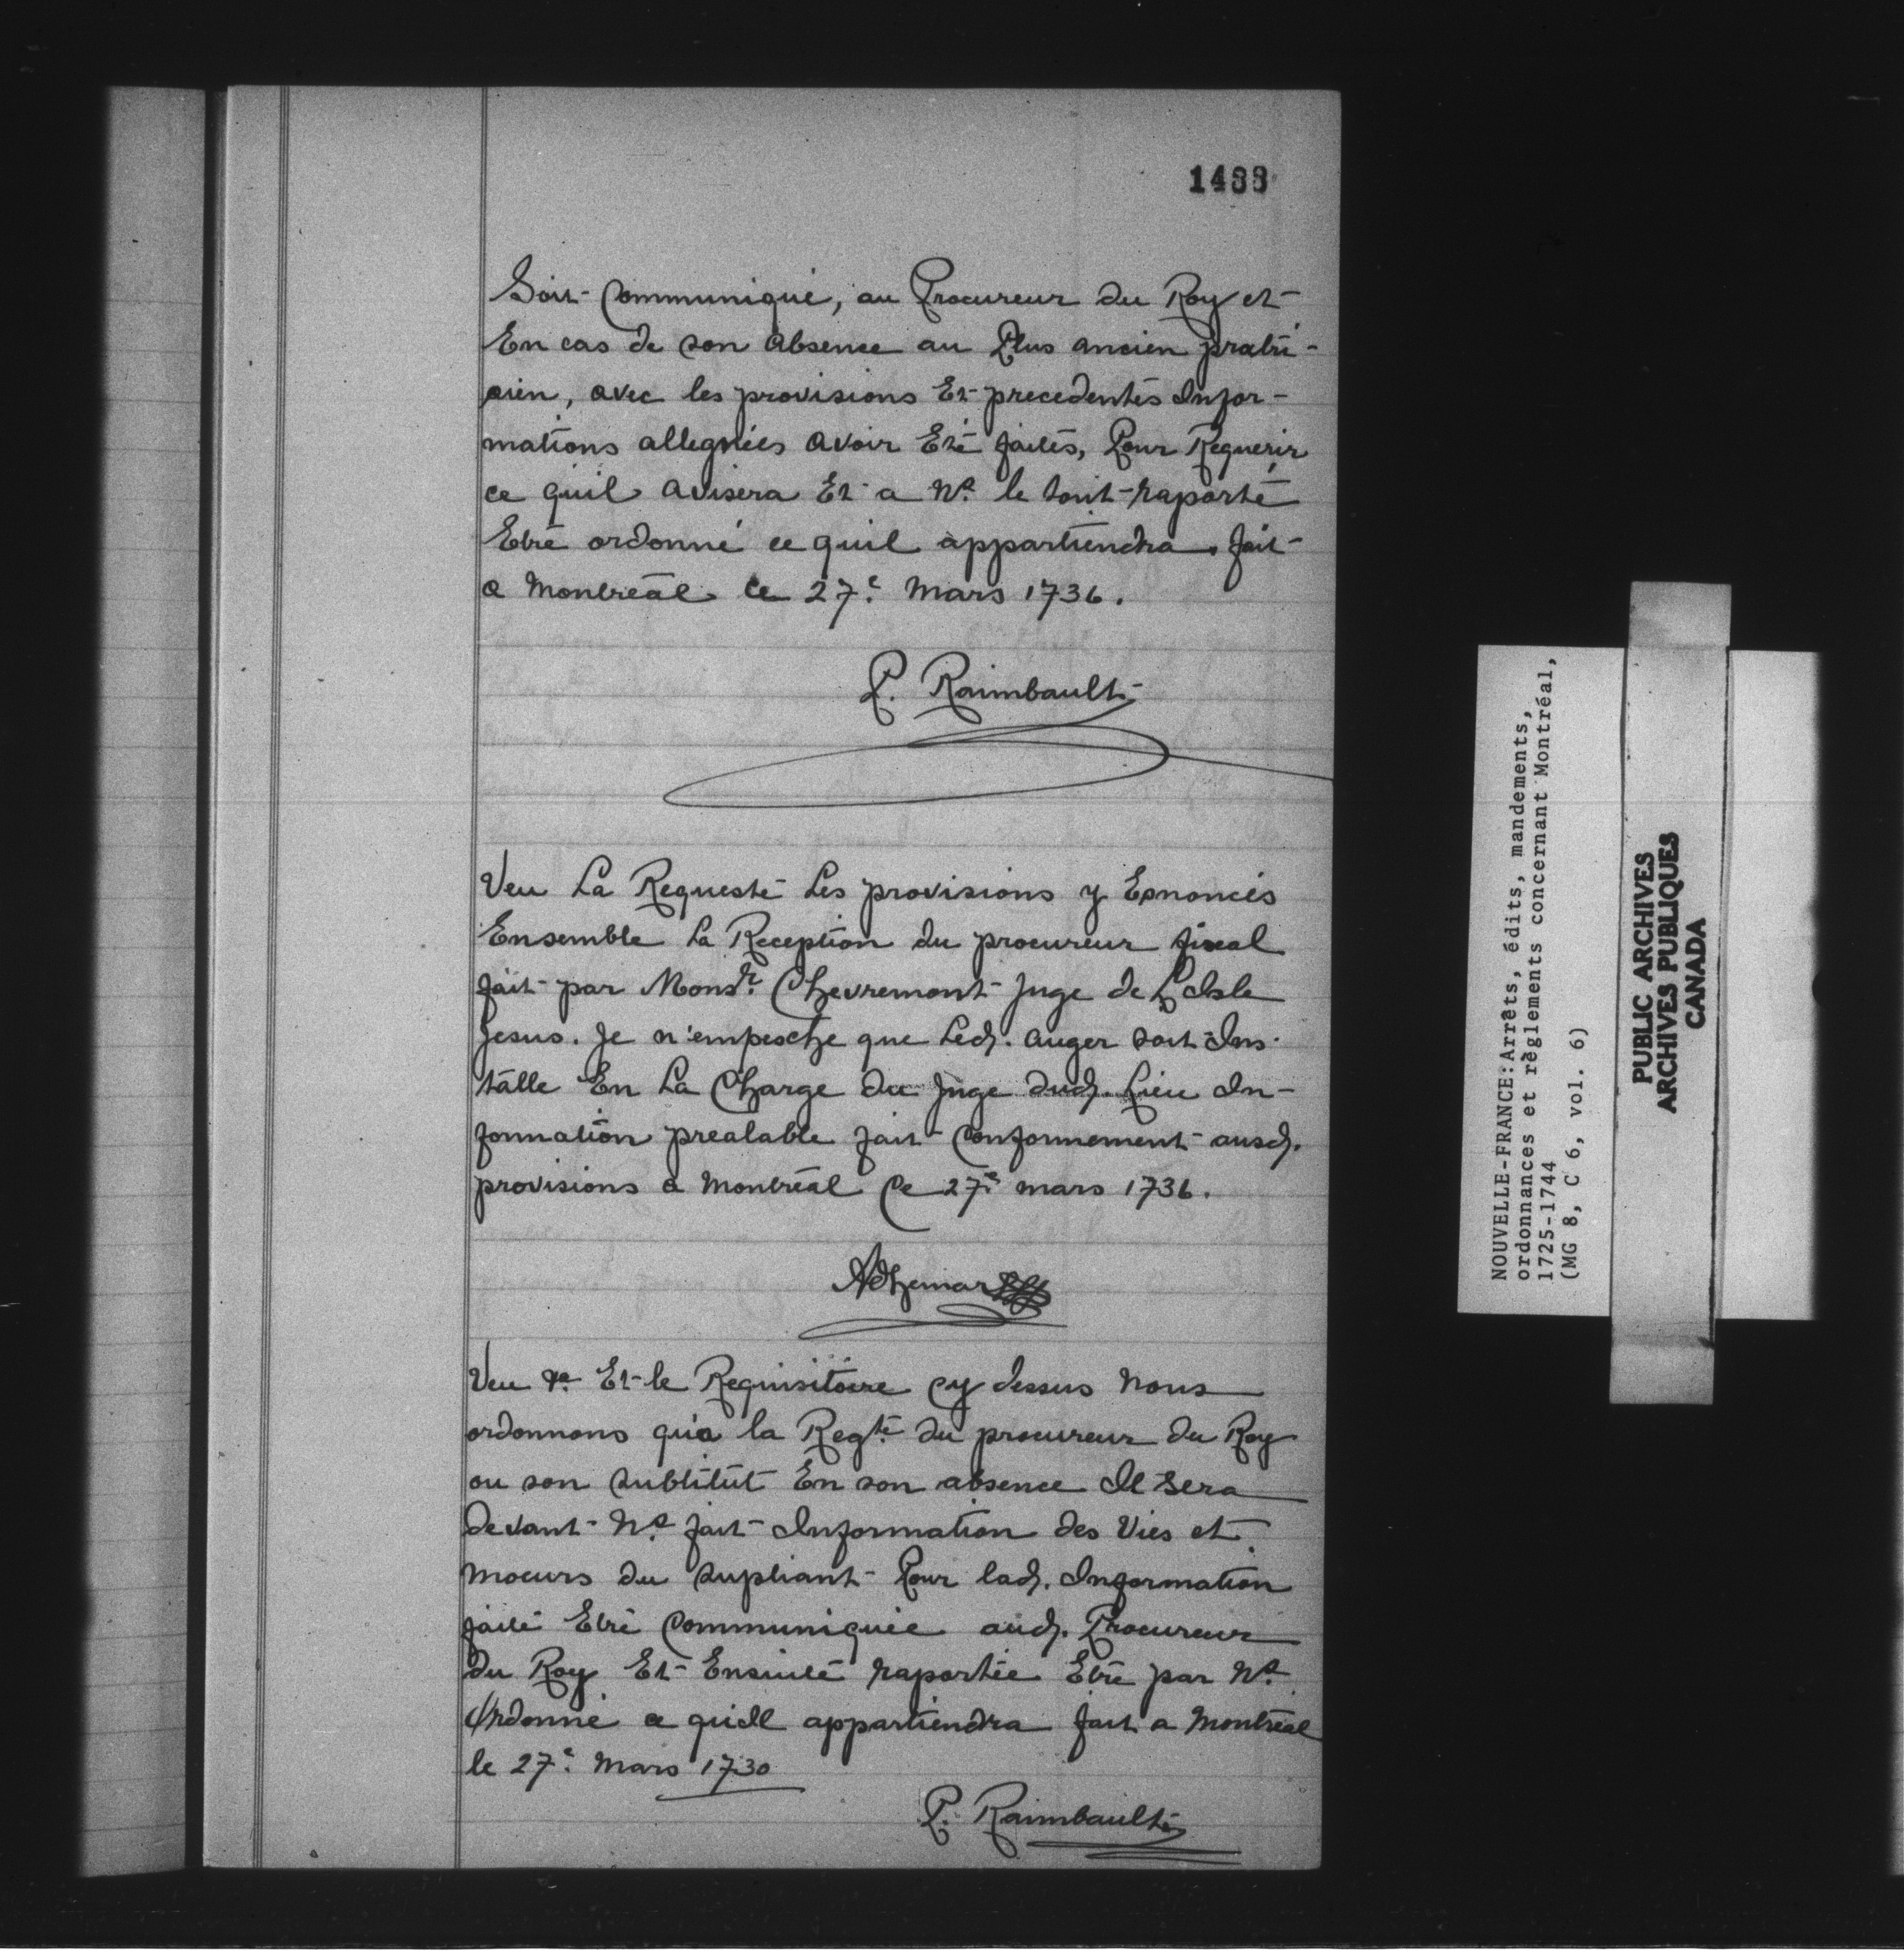 1488
Soit Communiqué, au Procureur du Roy et
En cas de son Absence au Plus ancien prati-
cien, avec les provisions Et precedentes Infor-
mations alleguées avoir Eté faites, Pour Requerir
ce qu'il avisera Et a Ns. le tout raporté
Etre ordonné ce quil appartiendra. fait
a Montreal ce 27e. Mars 1736.
P. Raimbault
Veu La Requeste Les provisions y Enoncés
Ensemble La Reception du procureur fiscal
fait par Monsr. Chevremont Juge de L'Isle
Jesus. Je n'empesche que Led. auger soit Ins-
tálle En La Charge du Juge dud. Lieu In-
formation prealable fait Conformement ausd.
provisions a Montréal Ce 27e. mars 1736.
Adhemar
Veu Et le Requisitoire cy dessus Nous
ordonnons qu'a la Reqte. du procureur du Roy
ou son subtitut En son absence Il sera
devant Ns. fait Information des Vies et
moeurs du supliant Pour lad. Information
faite Etre Communiquée aud. Procureur
du Roy Et Ensuite raportée Etre par Ns.
Ordonné ce qu'Il appartiendra fait a Montréal
le 27e. Mars 1730
P. Raimbault
NOUVELLE-FRANCE: Arrêts, édits, mandements,
ordonnances et règlements concernant Montréal,
1725-1744
(MG 8, C 6, vol. 6)
PUBLIC ARCHIVES
ARCHIVES PUBLIQUES
CANADA